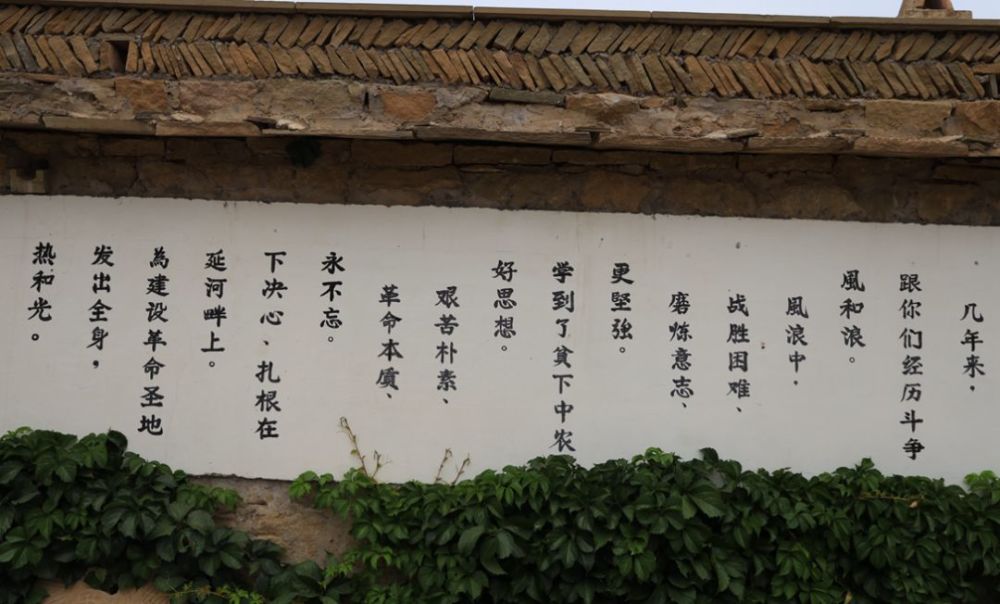 几年来，
跟你们经历斗争
風和浪。
風浪中，
战胜困难、
磨炼意志、
更堅強。
学到了貧下中农
好思想。
艰苦朴素、
革命本质、
永不忘。
下决心、扎根在
延河畔上。
為建设革命圣地
发出全身，
热和光。